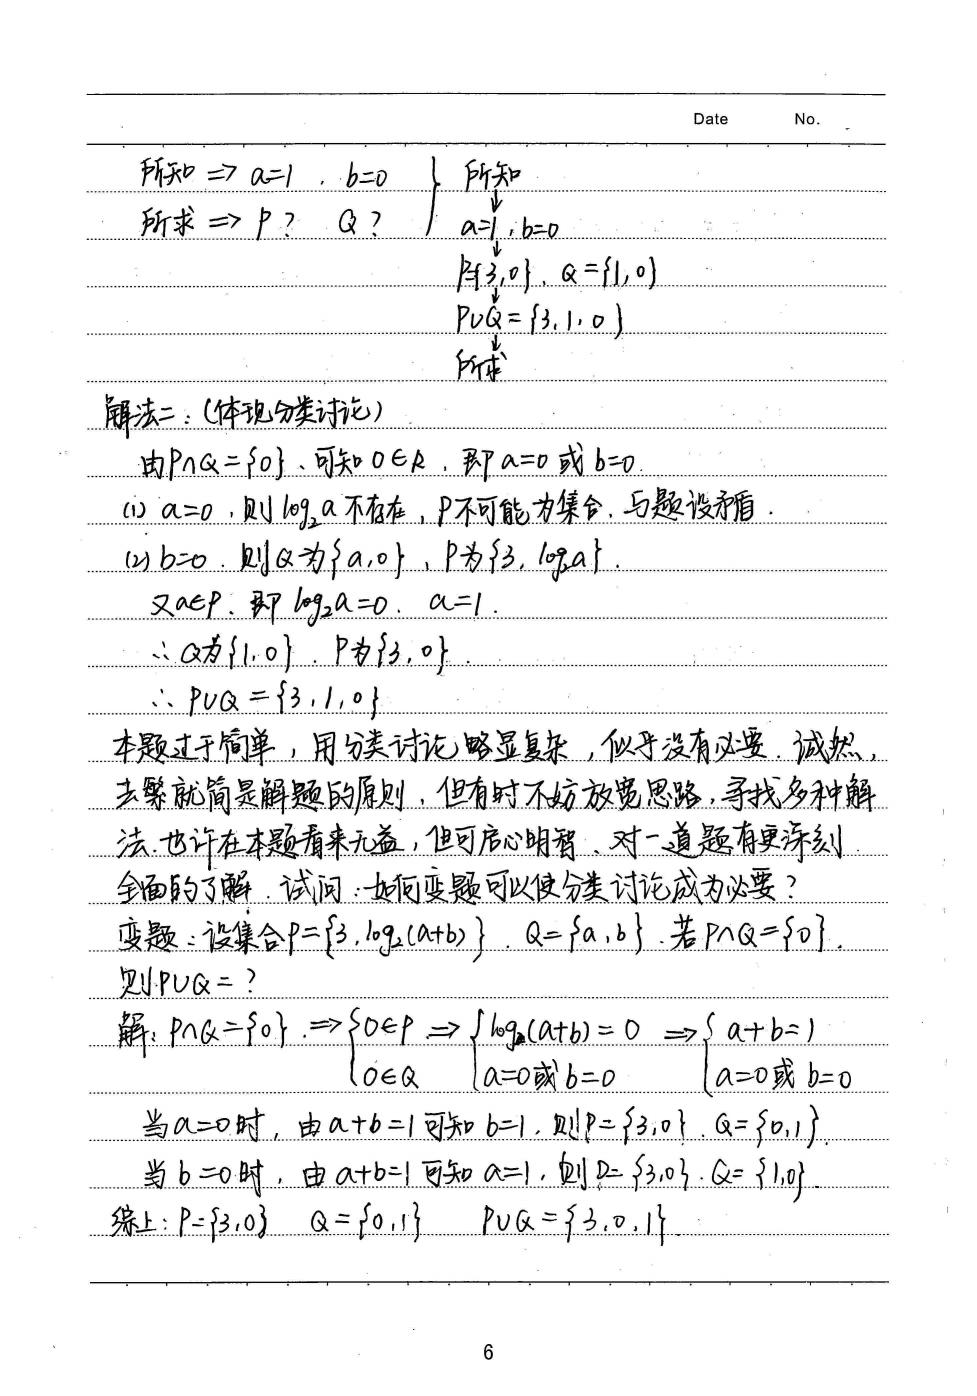 Date No.
所知 ⇒ a=1 , b=0 } 所知
↓
所求 ⇒ P? Q? a=1, b=0
↓
P={3,0}, Q={1,0}
↓
P∪Q={3,1,0}
↓
所求
解法二:(体现分类讨论)
由P∩Q={0}、可知0∈R,即a=0或b=0.
(1) a=0,则log₂a不存在,P不可能为集合,与题设矛盾.
(2) b=0.则Q为{a,0},P为{3,log₂a}.
又a∈P.即log₂a=0. a=1.
∴Q为{1,0}.P为{3,0}.
∴P∪Q={3,1,0}
本题过于简单,用分类讨论略显复杂,似乎没有必要.诚然,
去繁就简是解题的原则,但有时不妨放宽思路,寻找多种解
法.也许在本题看来无益,但可启心明智、对一道题有更深刻
全面的了解.试问:如何变题可以使分类讨论成为必要?
变题:设集合P={3,log₂(a+b)}.Q={a,b}.若P∩Q={0}.
则P∪Q=?
解:P∩Q={0}.⇒{0∈P ⇒ {log₂(a+b)=0 ⇒ {a+b=1
0∈Q a=0或b=0 a=0或b=0
当a=0时,由a+b=1可知b=1.则P={3,0}.Q={0,1}.
当b=0时,由a+b=1可知a=1,则P={3,0}.Q={1,0}.
综上:P={3,0} Q={0,1} P∪Q={3,0,1}
6